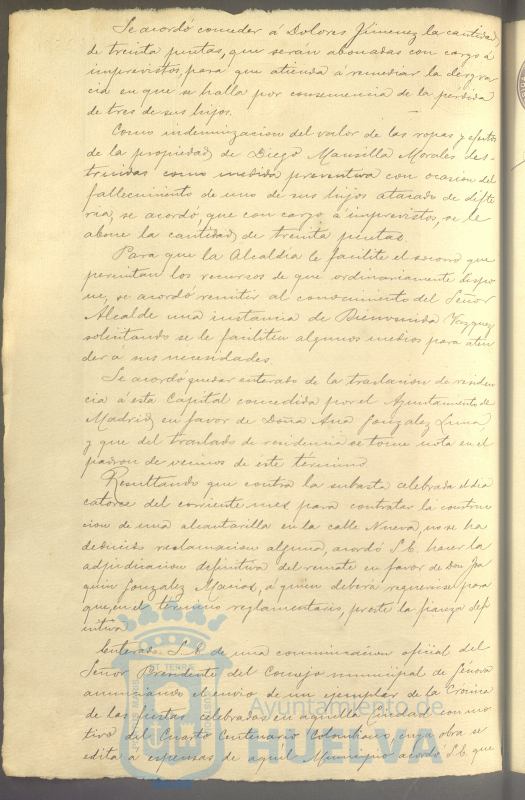 Se acordó conceder á Dolores Jimenez la cantidad
de treinta pesetas, que serán abonadas con cargo á
imprevistos, para que atienda á remediar la desgra-
cia en que se halla por consecuencia de la pérdida
de tres de sus hijos.
Como indemnizacion del valor de las ropas y efectos
de la propiedad de Diego Mansilla Morales des-
truidas como medida preventiva con ocasion del
fallecimiento de uno de sus hijos atacado de difte-
ria, se acordó, que con cargo á imprevistos, se le
abone la cantidad de treinta pesetas
Para que la Alcaldía le facilite el socorro que
permitan los recursos de que ordinariamente dispo-
ne, se acordó remitir al conocimiento del Señor
Alcalde una instancia de Bienvenida Vazquez
solicitando se le faciliten algunos medios para aten-
der á sus necesidades
Se acordó quedar enterado de la traslacion de residen-
cia á esta Capital concedida por el Ayuntamiento de
Madrid en favor de Doña Ana Gonzalez Luna,
y que del traslado de residencia se tome nota en el
padron de vecinos de este término
Resultando que contra la subasta celebrada el dia
catorce del corriente mes para contratar la construc-
cion de una alcantarilla en la calle Nueva, no se ha
deducido reclamacion alguna, acordó S.E. hacer la
adjudicacion definitiva del remate en favor de Don Joa-
quin Gonzalez á quien deberá requerirse para
que, en el término reglamentario, preste la fianza defi-
nitiva
Enterado S.E. de una comunicacion oficial del
Señor Presidente del Consejo municipal de Génova
anunciando el envio de un ejemplar de la Crónica
de las fiestas celebradas en aquella Ciudad con mo-
tivo del Cuarto Centenario Colombiano, cuya obra se
edita á espensas de aquel Municipio acordó S.E. que
Ayuntamiento de
HUELVA